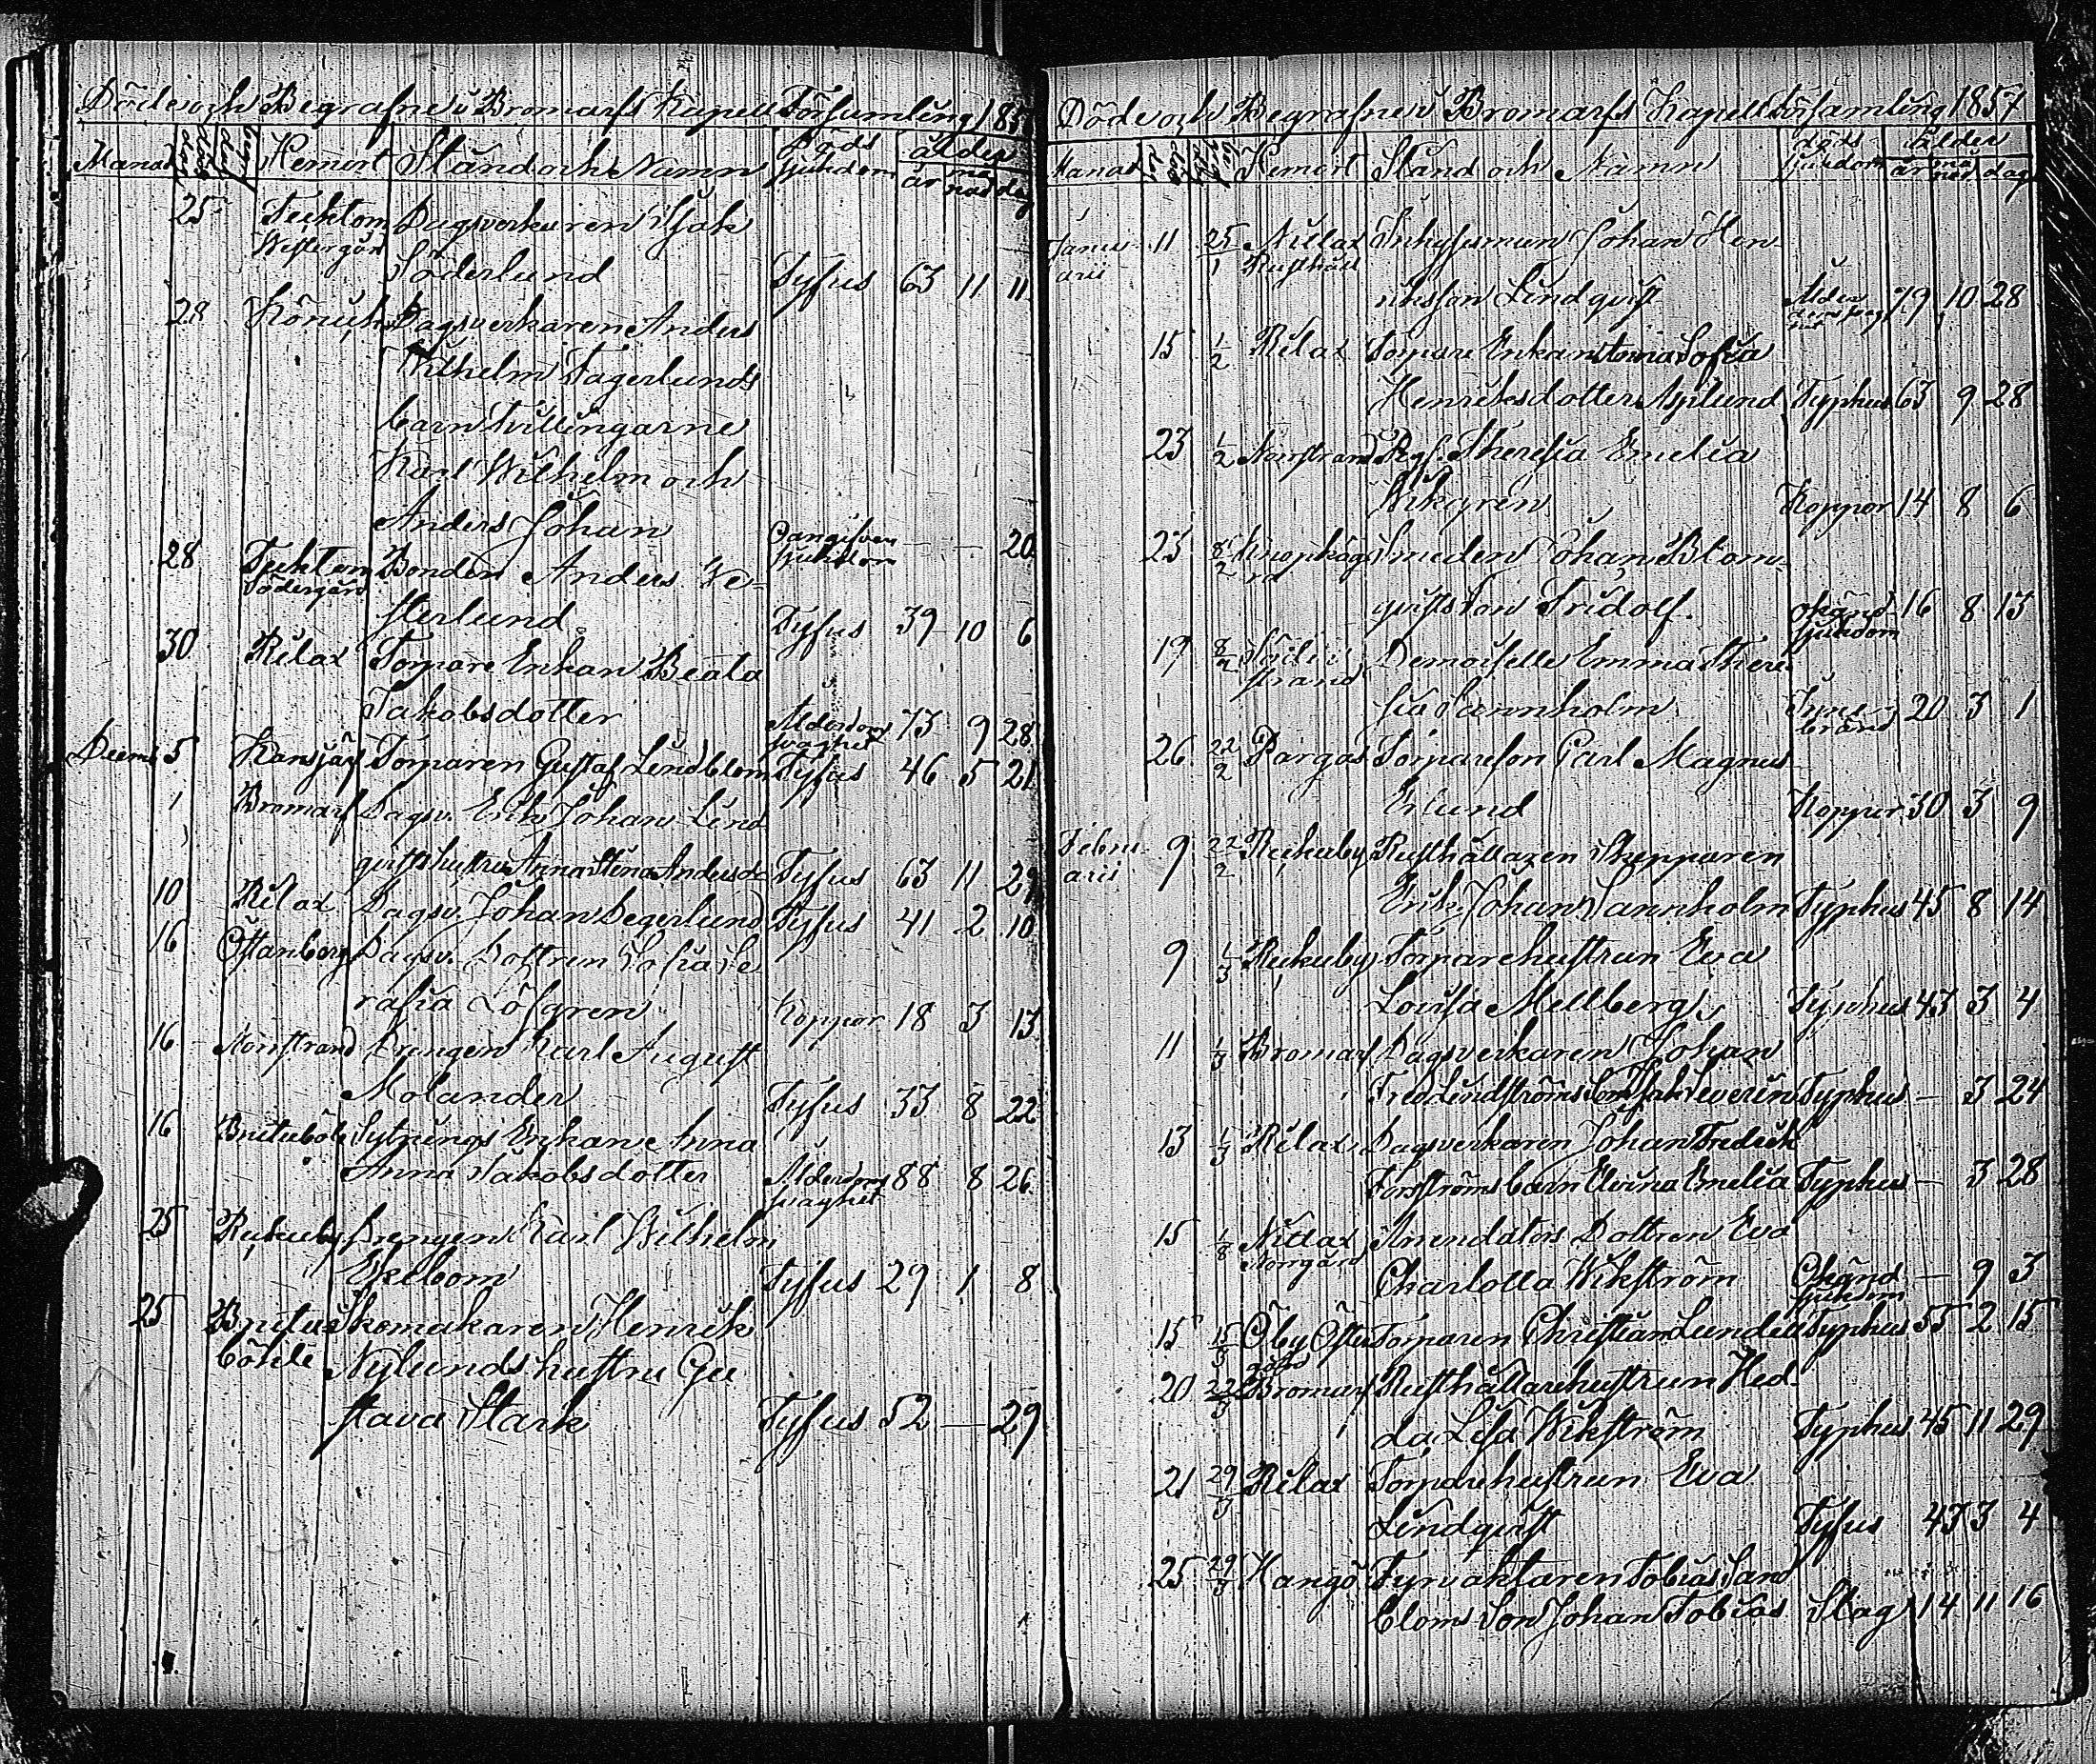 Döde och Begrafne i Bromarfs Kapell Församling 185
Månad Hemort Stånd och Namn Döds sjukdom ålder år månad dag
25 Tecktom Dagsverkaren Isak
Westergård
Söderlund Tyfus 63 11 11
28 Dagsverkaren Anders
Wilhelm Fagerlunds
barn Tvillingarne
Karl Wilhelm och
Anders Johan Oangifven sjukdom — — 20
28 Bonden Anders We-
Södergård
sterlund Tyfus 39 10 6
30 Rilax Torpare Enkan Beata
Jakobsdotter Ålderdoms svaghet 73 9 28
5 Torparen Gustaf Lindblom Tyfus 46 5 21
1 Bromarf Dagsv. Erik Johan Lind
qvists hustru Anna Stina Andersd Tyfus 63 11 29
10 Rilax Dagsv. Johan Degerlund Tyfus 41 2 10
16 Östanberg Dagsv. Dottren Sofia Se
rafia Löfgren Koppor 18 3 13
16 Norrstrand Drengen Karl August
Molander Tyfus 33 8 22
16 Sytnings Enkan Anna
Anna Jakobsdotter Ålderdoms svaghet 88 8 26
25 Rukuby Drengen Karl Wilhelm
Ekebom Tyfus 29 1 8
25 Skomakaren Henrik
böhle Nylunds hustru Gu
stava Stark Tyfus 52 — 29
Döde och Begrafne i Bromarfs Kapell Församling 1857
Månad Hemort Stånd och Namn döds sjukdom ålder år månad dag
Janu 11 25/1 Inhysesman Johan Hen
arii Rusthåll
riksson Lindqvist 79 10 28
15 1/2 Rilax Torpare Enkan Sofia
Henriksdotter Asplund Typhus 63 9 28
23 1/2 Norrstrand Pig. Theresia Emelia
Wikgren Koppor 14 8 6
23 8/2 Smeden Johan Blom-
qvists Son Fridolf okänd sjukdom 16 8 13
19 8/2 Söder Demoiselle Emma There
strand
sia Sannholm 20 3 1
26 22/2 Pargas Torpareson Carl Magnus
Erlund Koppor 30 3 9
Febru 9 22/2 Rukuby Rusthållaren Skepparen
arii
Erik Johan Sannholm Typhus 45 8 14
9 1/3 Rukuby Torparehustrun Eva
Lovisa Mellberg Typhus 43 3 4
11 1/3 Bromarf Dagsverkaren Johan
Fred Lindströms Son Isak Severin Typhus — 3 24
13 1/3 Rilax Dagsverkaren Johan Fredrik
Forsströms barn Elvina Emelia Typhus — 3 28
15 1/8 Arrendators Dottren Eva
Norrgård
Charlotta Wikström Okänd sjukdom — 9 3
15 15/3 Öby Torparen Christian Typhus 55 2 15
gård
20 22/3 Bromarf Rusthållarehustrun Hed-
da Lisa Wikström Typhus 45 11 29
21 29/3 Rilax Torparehustrun Eva
Lindqvist Tyfus 43 3 4
25 29/3 Hangö Fyrvaktaren Tobias Sand
bloms Son Johan Tobias Slag 14 11 16